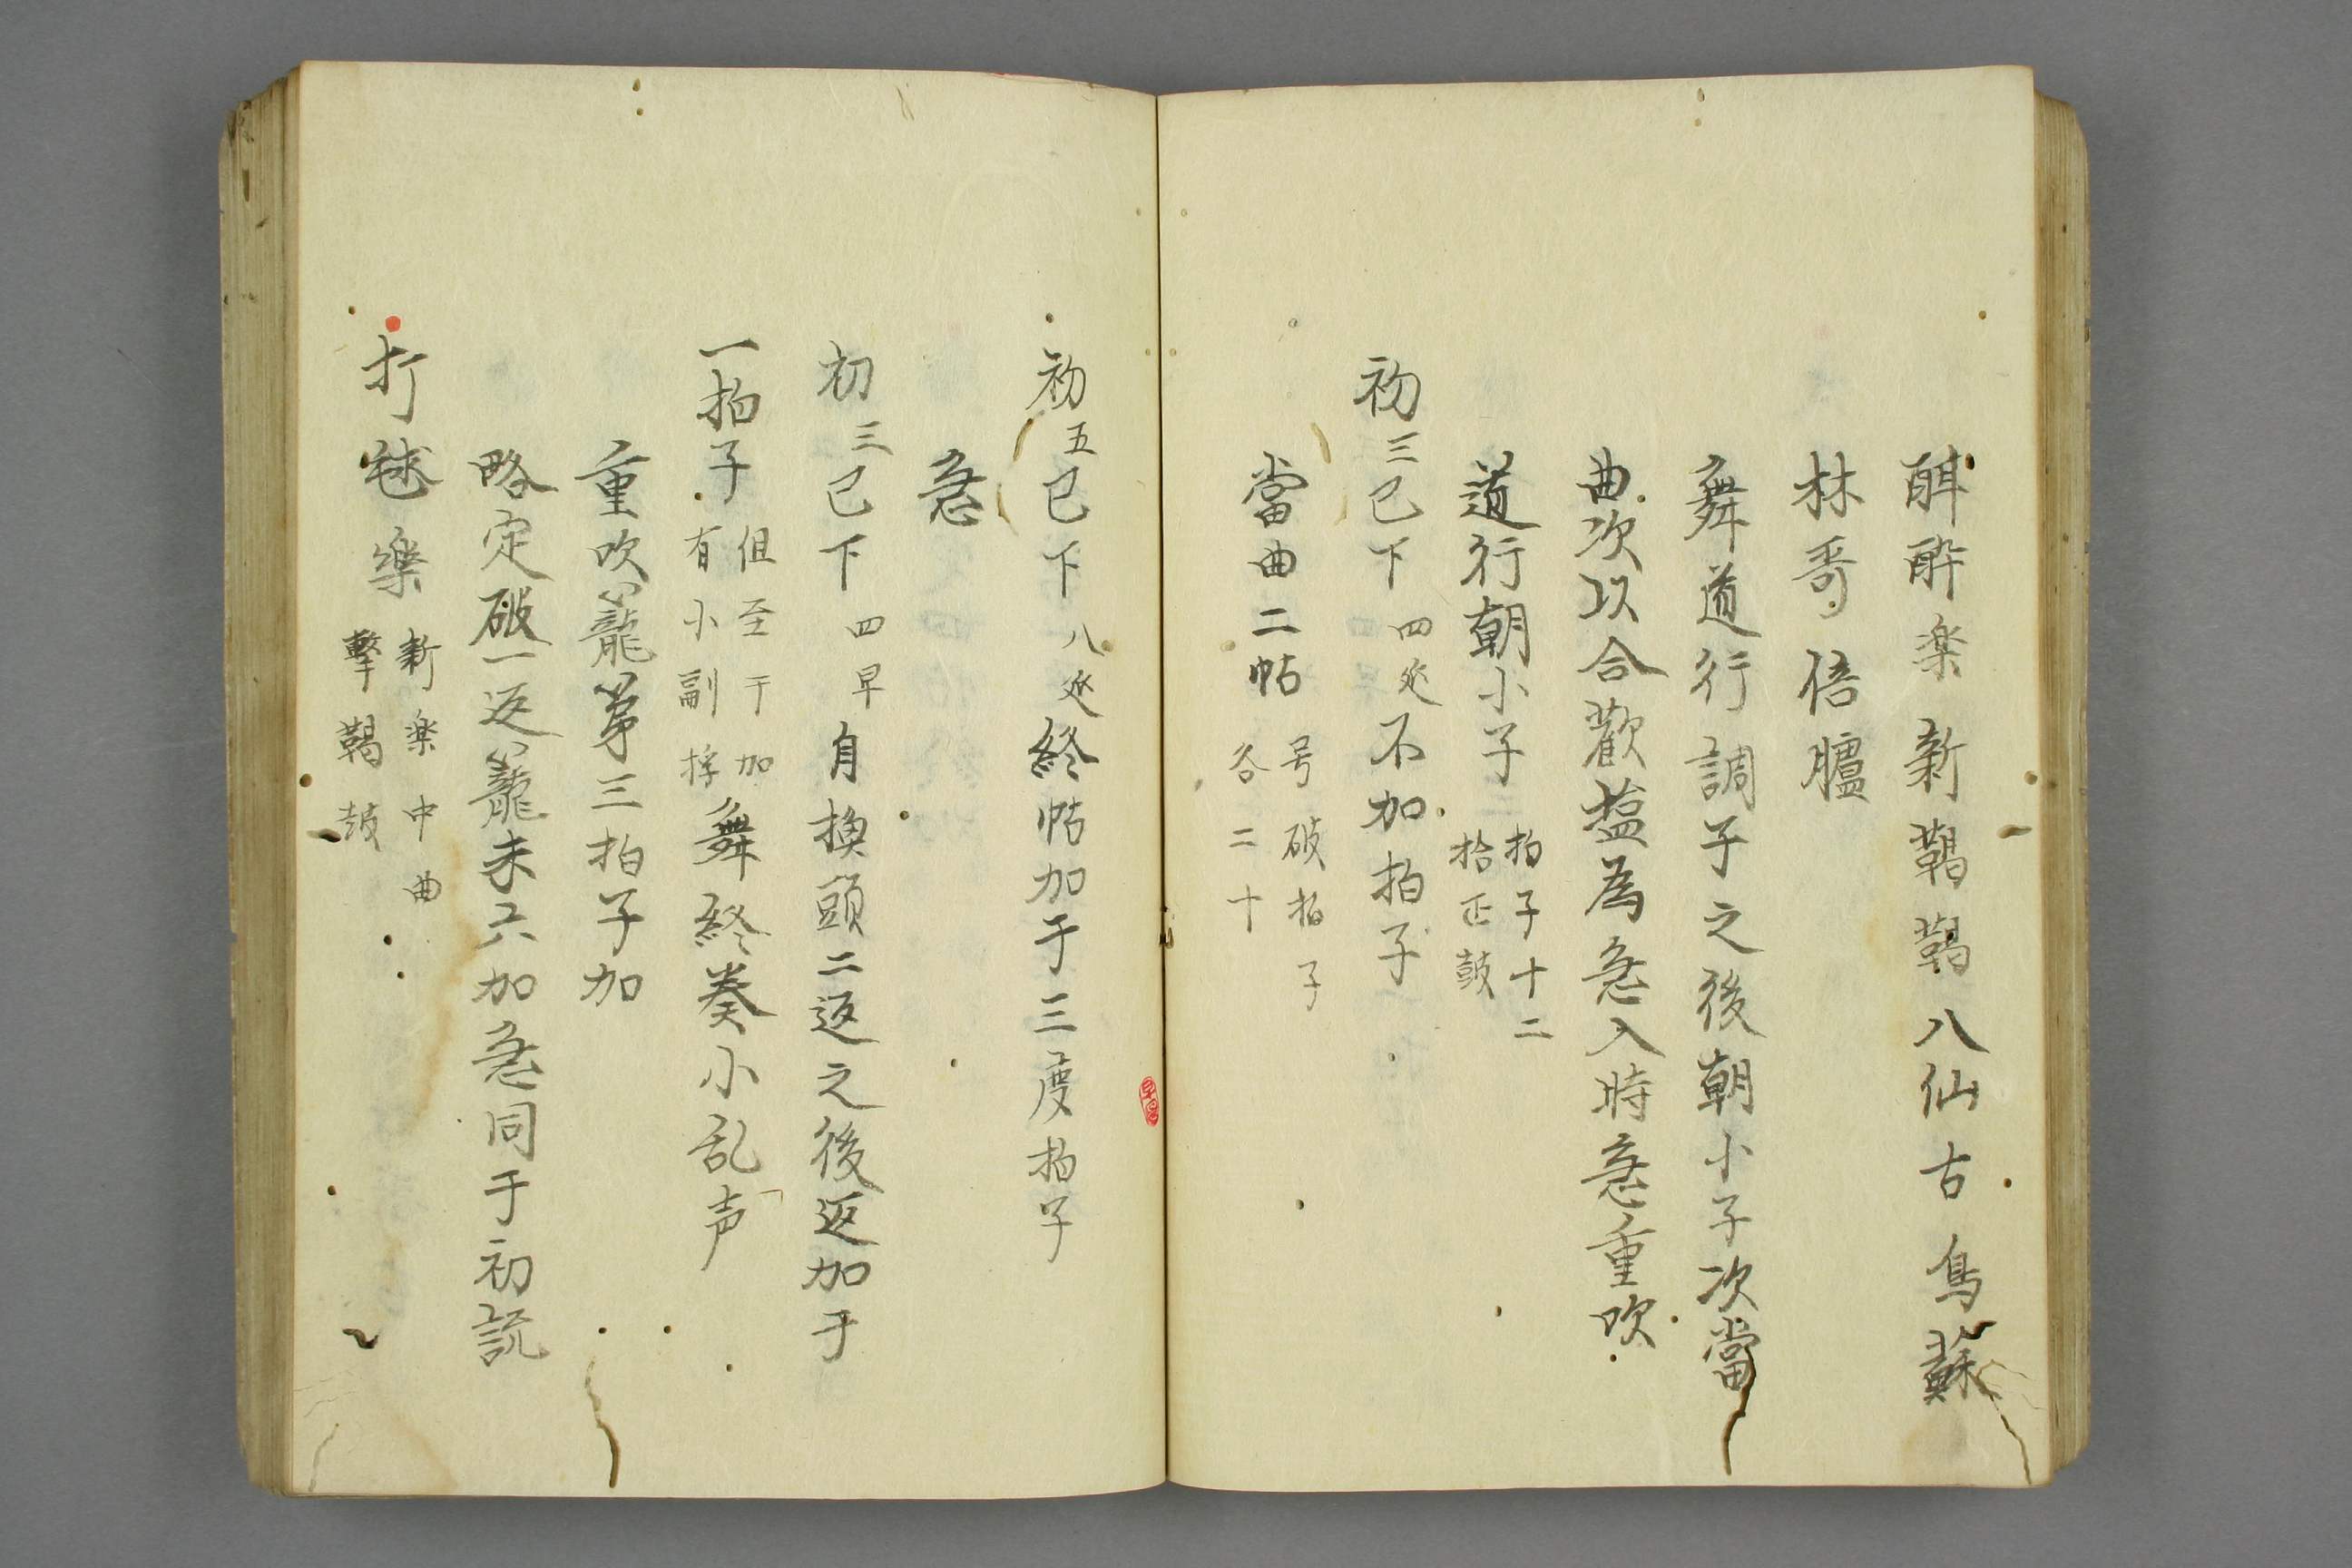 酣酔楽新鞨鞨八仙古鳥蘇
林哥倍臚
舞道行調子之後朝小子次當
曲次以合歡塩為急入時急重吹
道行朝小子 拍子十二
拾正鼓
初三已下四延不加拍子
當曲二帖 号破拍子
各二十
初五已下八延終帖加于三度拍子
急
初三已下四早自換頭二返之後返加于
一拍子 但至于加
有小副桴 舞終奏小乱声
重吹籠第三拍子加
略定破一返籠未六加急同于初説
打毬樂 新楽中曲
撃鞨鼓